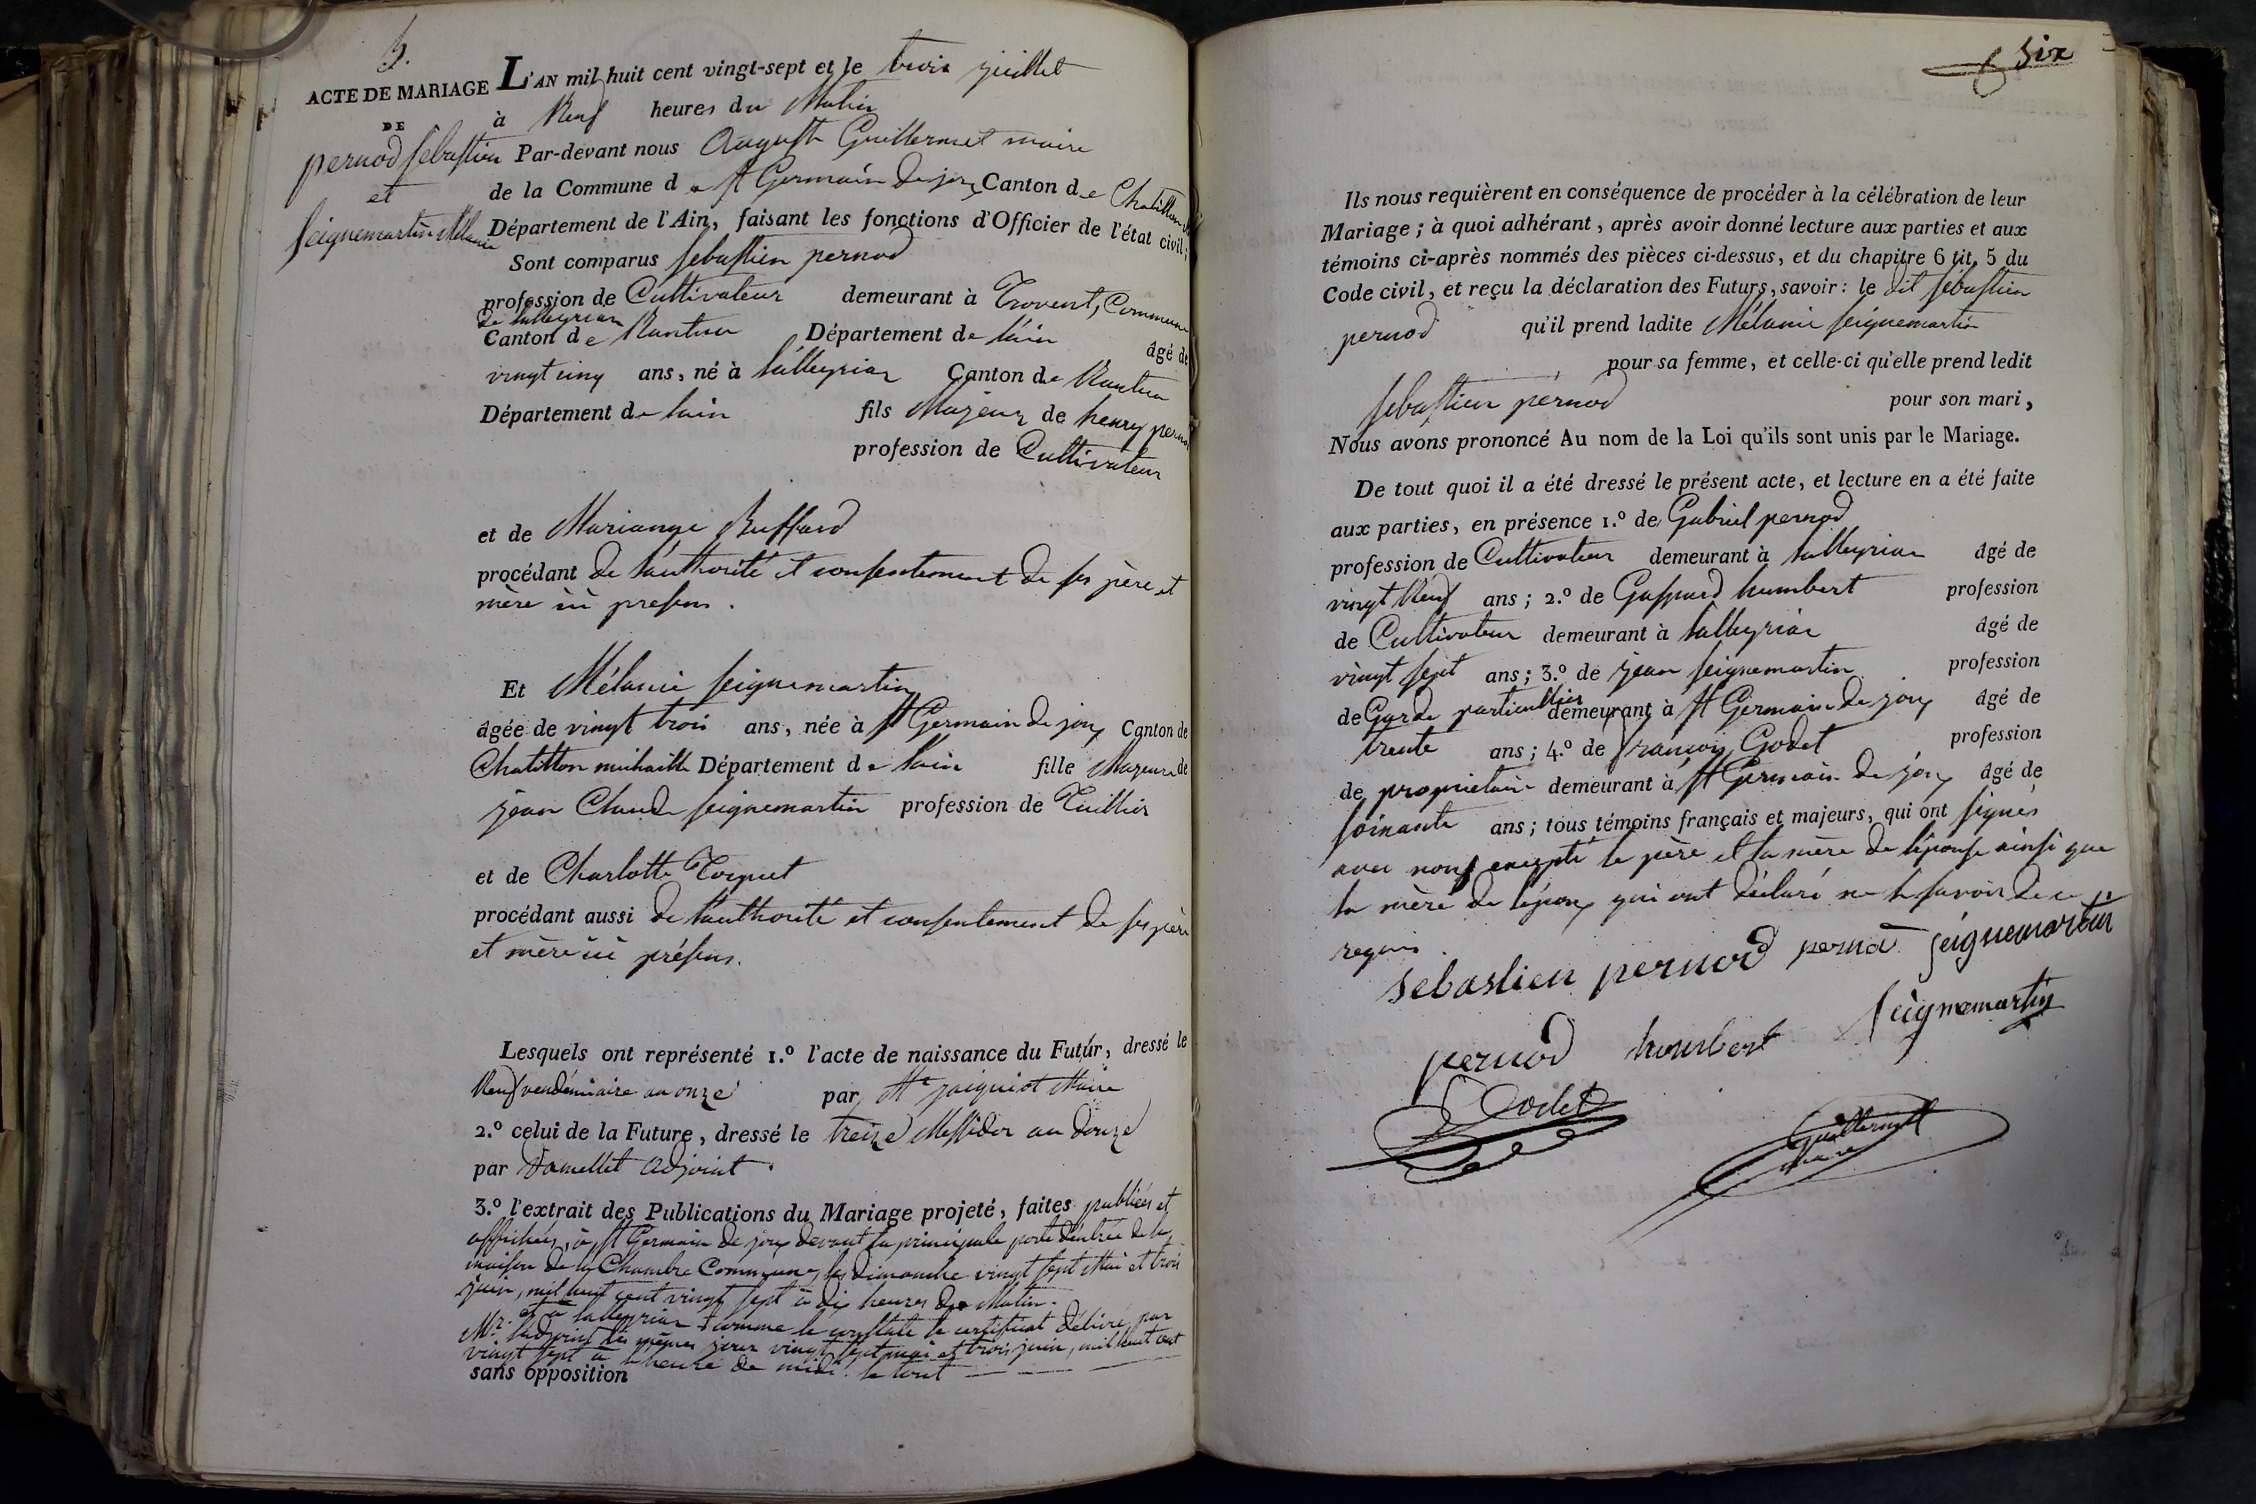 5.
ACTE DE MARIAGE
DE
pernod sebastien
et
seignemartin Mélanie
L'AN mil huit cent vingt-sept et le trois juillet
à Neuf heures du Matin
Par-devant nous Auguste Guillermet maire
de la Commune de St Germain de joux Canton de Chatillon
Département de l'Ain, faisant les fonctions d'Officier de l'état civil;
Sont comparus sebastien pernod
profession de Cultivateur demeurant à Trovent, Commune
de talleyriat
Canton de Nantua Département de l'ain âgé de
vingt cinq ans, né à talleyriat Canton de Nantua
Département de l'ain fils Majeur de henry pernod
profession de Cultivateur
et de Mariange Buffard
procédant de l'authorité et consentement de ses père et
mère ici presens.
Et Mélanie seignemartin
âgée de vingt trois ans, née à St Germain de joux Canton de
Chatillon michaille Département de l'ain fille Majeure de
jean Claude seignemartin profession de Tuillier
et de Charlotte
procédant aussi de l'authorité et consentement de ses père
et mère ici présens.
Lesquels ont représenté 1.º l'acte de naissance du Futur, dressé le
Neuf vendémiaire an onze par Mr Maire
2.º celui de la Future, dressé le treize Messidor an douze
par adjoint.
3.º l'extrait des Publications du Mariage projeté, faites publiées et
affichées, à St Germain de joux devant la principale porte d'entrée de la
maison de la Chambre Commune, les dimanche vingt sept Mai et trois
juin, mil huit cent vingt sept à dix heures du Matin.
et à talleyriat comme le constate le certificat délivré par
Mr. l'adjoint les mêmes jours vingt sept mai et trois juin, mil huit cent
vingt sept à l'heure de midi. le tout
sans opposition
six
Ils nous requièrent en conséquence de procéder à la célébration de leur
Mariage; à quoi adhérant, après avoir donné lecture aux parties et aux
témoins ci-après nommés des pièces ci-dessus, et du chapitre 6 tit. 5 du
Code civil, et reçu la déclaration des Futurs, savoir: le dit sébastien
pernod qu'il prend ladite Mélanie seignemartin
pour sa femme, et celle-ci qu'elle prend ledit
sebastien pernod pour son mari,
Nous avons prononcé Au nom de la Loi qu'ils sont unis par le Mariage.
De tout quoi il a été dressé le présent acte, et lecture en a été faite
aux parties, en présence 1.º de Gabriel pernod
profession de Cultivateur demeurant à talleyriat âgé de
vingt Neuf ans; 2.º de Gaspard humbert profession
de Cultivateur demeurant à talleyriat âgé de
vingt sept ans; 3.º de jean seignemartin profession
de Garde particullier demeurant à St Germain de joux âgé de
trente ans; 4.º de françois Godet profession
de propriétaire demeurant à St Germain de joux âgé de
soixante ans; tous témoins français et majeurs, qui ont signés
avec nous excepté le père et la mère de l'épouse ainsi que
la mère de l'époux qui ont déclaré ne le savoir de ce
requis.
sebastien pernod pernod seignemartin
pernod humbert seignemartin
Godet
Guillermet
maire